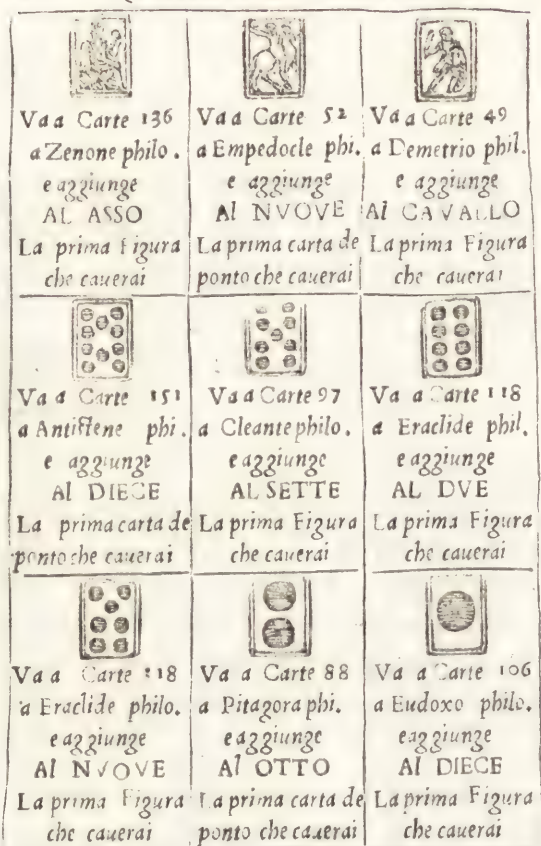 Va a Carte 136
a Zenone philo.
e aggiunge
AL ASSO
La prima Figura
che cauerai
Va a Carte 52
a Empedocle phi.
e aggiunge
Al NVOVE
La prima carta de
ponto che cauerai
Va a Carte 49
a Demetrio phil.
e aggiunge
Al CAVALLO
La prima Figura
che cauerai
Va a Carte 151
a Antistene phi.
e aggiunge
Al DIECE
La prima carta de
ponto che cauerai
Va a Carte 97
a Cleante philo.
e aggiunge
AL SETTE
La prima Figura
che cauerai
Va a Carte 118
a Eraclide phil.
e aggiunge
AL DVE
La prima Figura
che cauerai
Va a Carte 118
a Eraclide philo.
e aggiunge
Al NVOVE
La prima Figura
che cauerai
Va a Carte 88
a Pitagora phi.
e aggiunge
Al OTTO
La prima carta de
ponto che cauerai
Va a Carte 106
a Eudoxo philo.
e aggiunge
Al DIECE
La prima Figura
che cauerai